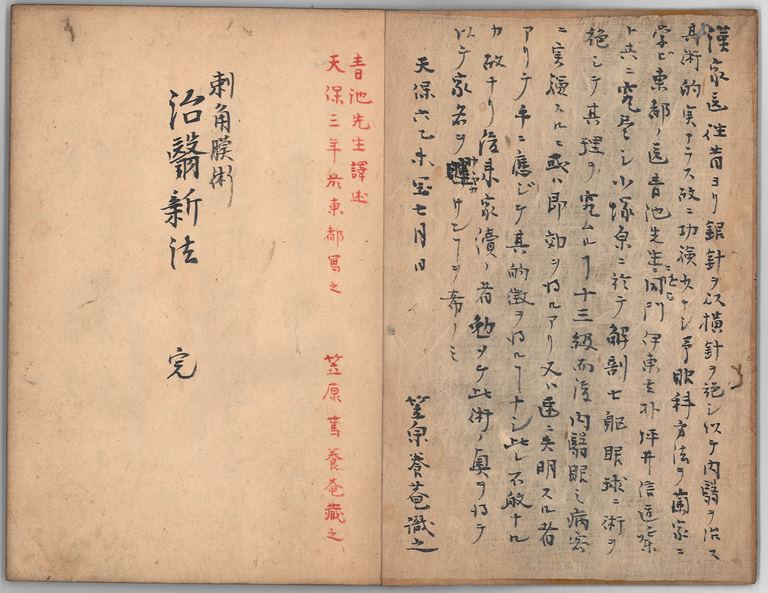 漢家医往昔ヨリ銀針ヲ以横針ヲ施シ以テ内翳ヲ治ス
其術的実ナラス故ニ功験少ナシ予眼科方法ヲ蘭家ニ
学ビ東都ノ医青池先生ノ同門伊東玄朴坪井信道輩
ト共ニ究尽シ小塚原ニ於テ解剖七躯眼球ニ術ヲ
施シテ其理ヲ究ムルヿ十三級而後内翳眼之病客
ニ実験スルニ或ハ即効ヲ得ルアリ又ハ速ニ失明スル者
アリテ手ニ應ジテ其的徴ヲ得ルヿナシ此レ不敏ナル
カ故ナリ後来家瀆ノ者勉メテ此術ノ奥ヲ得テ
以テ家名ヲ サンヿヲ希ノミ
天保六乙未 七月日
笠原養菴識之
青池先生譯述
天保三年於東都写之
笠原篤養菴藏之
刺角膜術
治翳新法 完